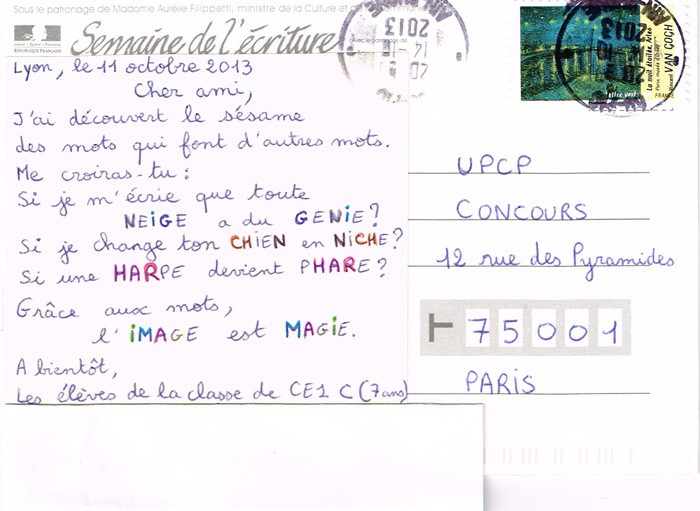 Sous le patronage de Madame Aurélie Filippetti, ministre de la Culture et de
Semaine de l'écriture
RÉPUBLIQUE FRANÇAISE
Lyon, le 11 octobre 2013
Cher ami,
J'ai découvert le sésame
des mots qui font d'autres mots.
Me croiras-tu :
Si je m'écrie que toute
NEIGE a du GENIE ?
Si je change ton CHIEN en NICHE ?
Si une HARPE devient PHARE ?
Grâce aux mots,
l'IMAGE est MAGIE.
A bientôt,
Les élèves de la classe de CE1 C (7 ans)
2013
14 - 10
La nuit étoilée, Arles
VAN GOGH
FRANCE
lettre verte
2013
UPCP
CONCOURS
12 rue des Pyramides
75001
PARIS